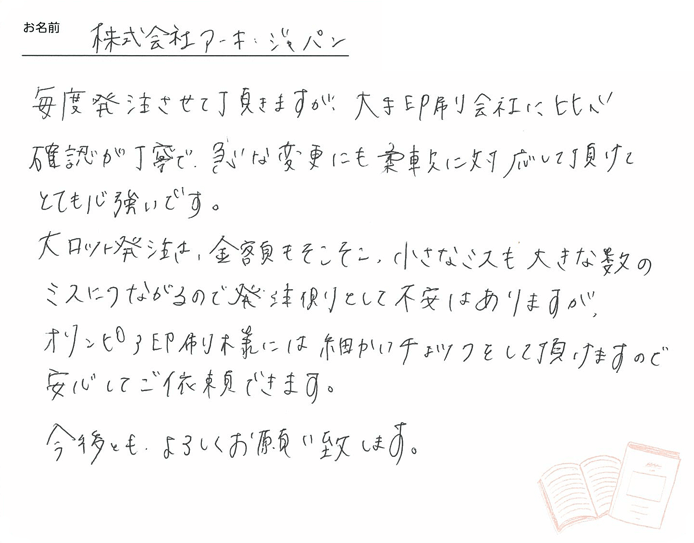 お名前 株式会社アーキ・ジャパン
毎度発注させて頂きますが、大手印刷会社に比べ
確認が丁寧で、急な変更にも柔軟に対応して頂けて
とても心強いです。
大ロット発注は、金額もそこそこ、小さなミスも大きな数の
ミスにつながるので発注側として不安はありますが、
オリンピア印刷様には細かいチェックをして頂けますので
安心してご依頼できます。
今後とも、よろしくお願い致します。